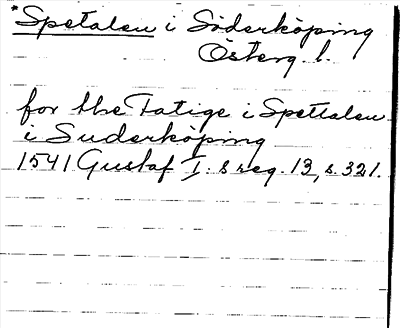 *Spetalen i Söderköping
Österg. l.
for the Fatige i Spettalen
i Suderköping
1541 Gustaf I:s reg. 13, s. 321.